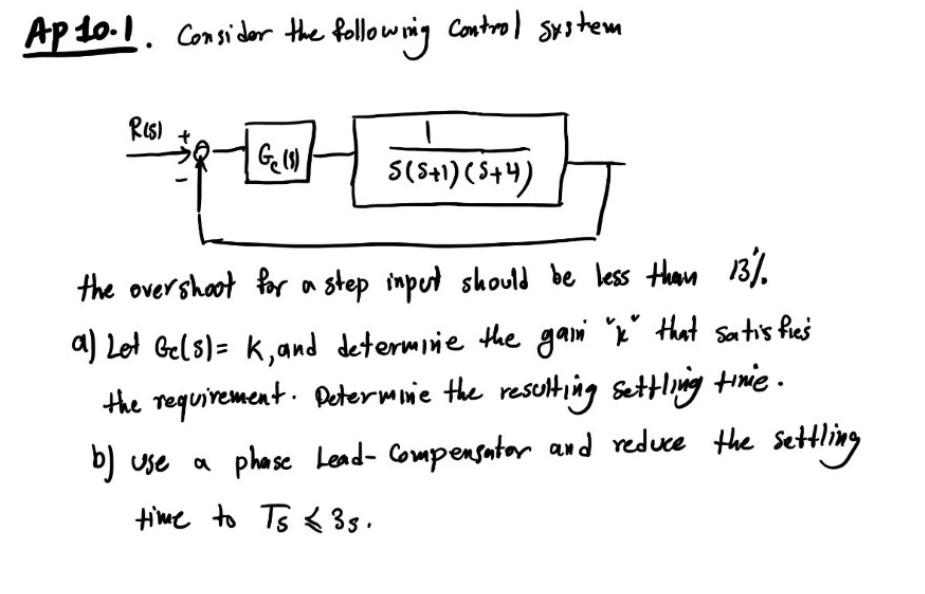 Ap 10.1. Consider the following Control system
R(s) + 1
Gc(s)
S(S+1)(S+4)
-
the overshoot for a step input should be less than 13%.
a) Let Gc(s)= K, and determine the gain "k" that satisfies
the requirement. Determine the resulting settling time.
b) use a phase Lead-Compensator and reduce the settling
time to Ts ≤ 3s.